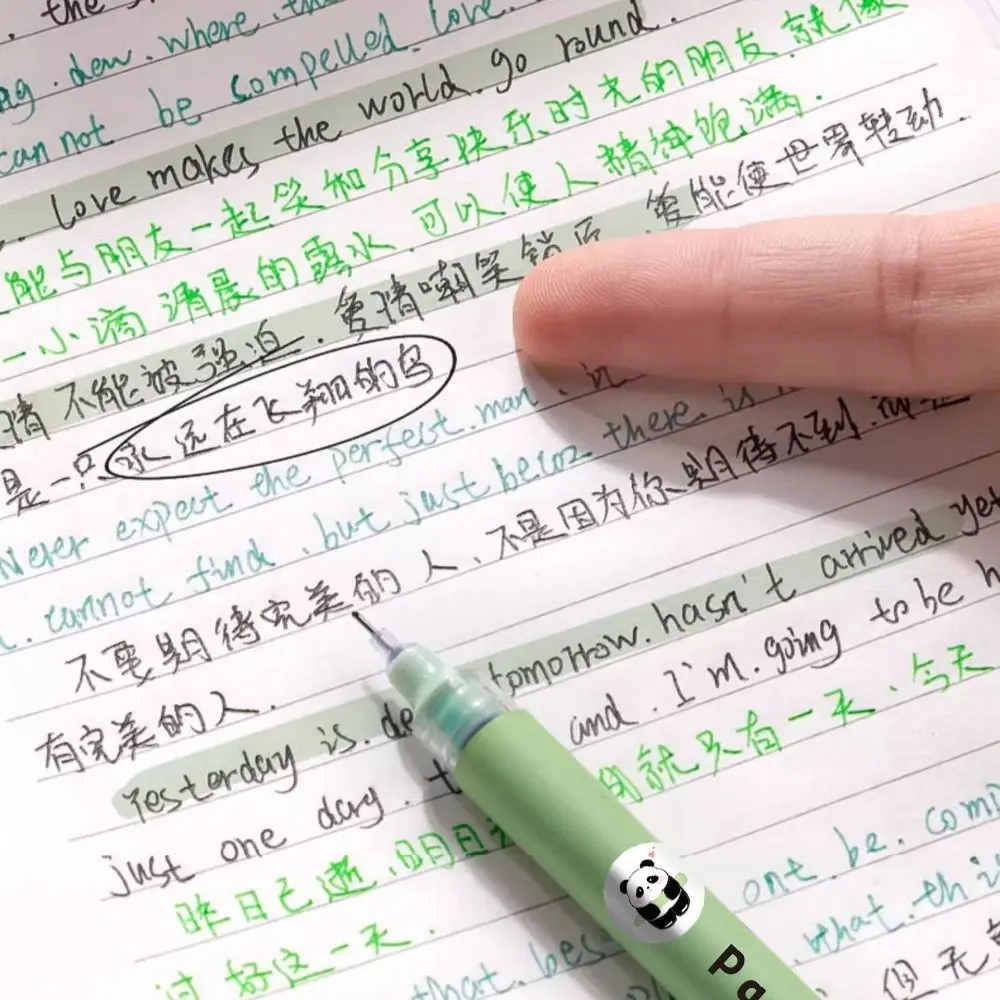 the s
ng. dew. where. th
cannot be compelled. love.
Love makes the world. go round.
能与朋友一起笑和分享快乐时光的朋友 就像
一小滴清晨的露水. 可以使人精神饱满.
情不能被强迫. 爱情嘲笑锁 . 爱能使世界转动.
是一只永远在飞翔的鸟
Never expect the perfect. man. i
cannot find. but just becoz there. is
不要期待完美的人、不是因为你期待不到.
有完美的人.
Yesterday is. de tomorrow. hasn't arrived yet
just one day. and. I'm. going to be h
昨日已逝、明日 就只有一天、今天
过好这一天.
ont. be. comp
that. bes what. thi
但无
Pa